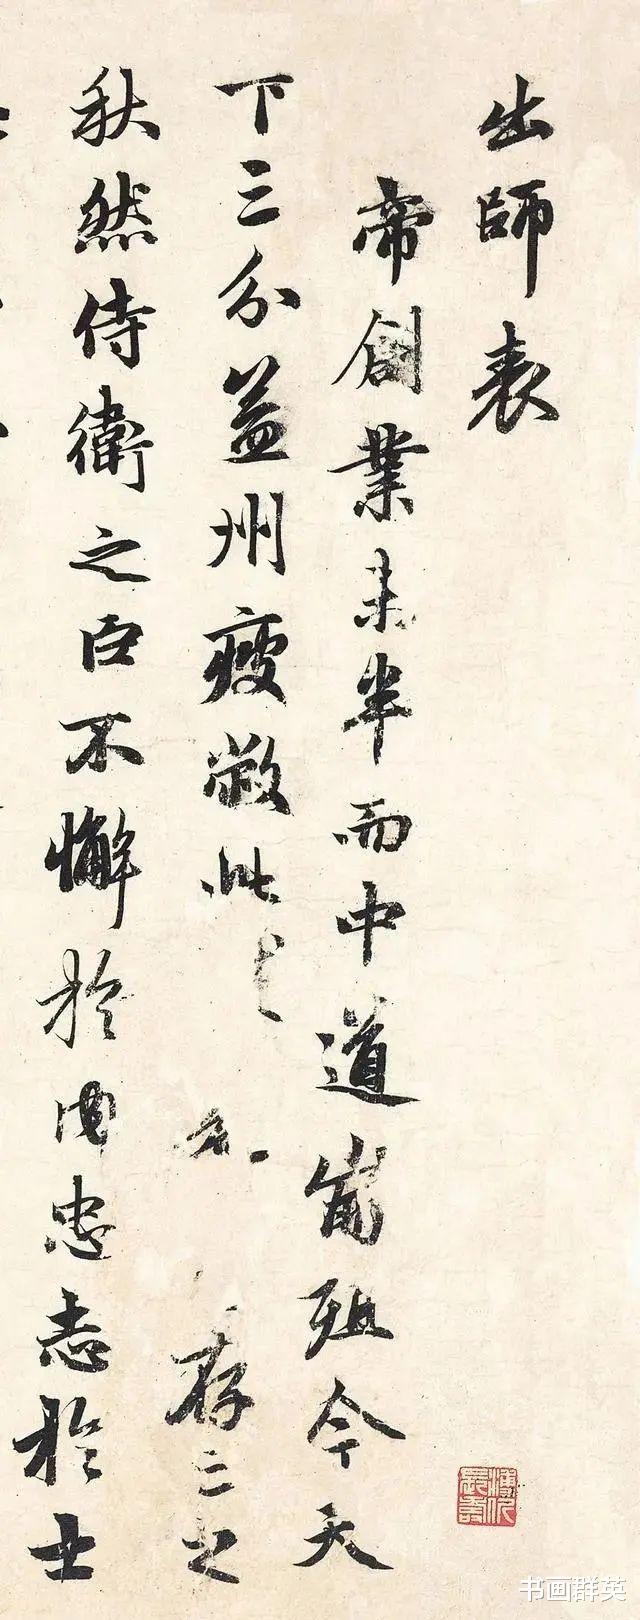 出師表
帝創業未半而中道崩殂今天
下三分益州疲敝此存亡之
秋然侍衛之臣不懈於内忠志於士
书画群英